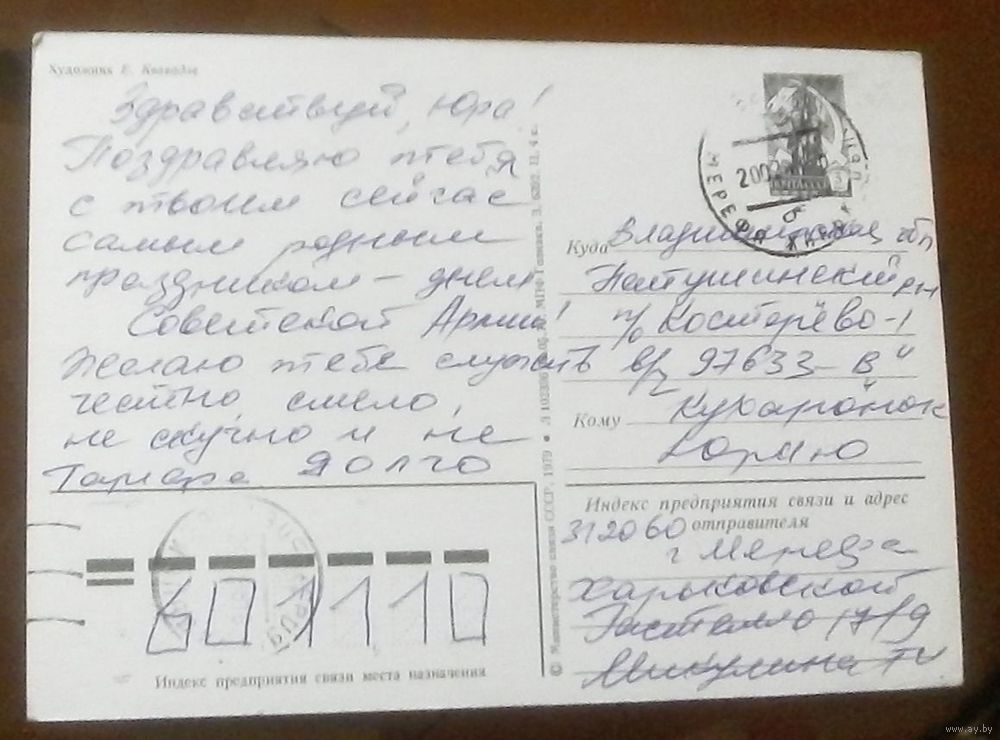 Художник Е. Квавадзе
Здравствуй, Юра!
Поздравляю тебя
с твоим сейчас
самым родным
праздником – днем
Советской Армии!
Желаю тебе служить
честно, смело,
не скучно и не
долго
Тамара
МЕРЕФА
Куда Владимирская обл
Петушинский рн
п/о Костерёво-1
в/ч 97633 - В"
Кому
Юрию
Индекс предприятия связи и адрес
отправителя
312060
г Мерефа
Харьковской
Гастелло 17/9
Микулина
601110
Индекс предприятия связи места назначения
© Министерство связи СССР, 1979
www.ay.by